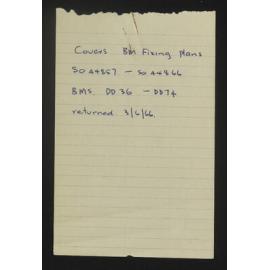 Covers BM Fixing Plans
SO A4857 - SO A4866
BMS. DD36 - DD74
returned 3/6/66.